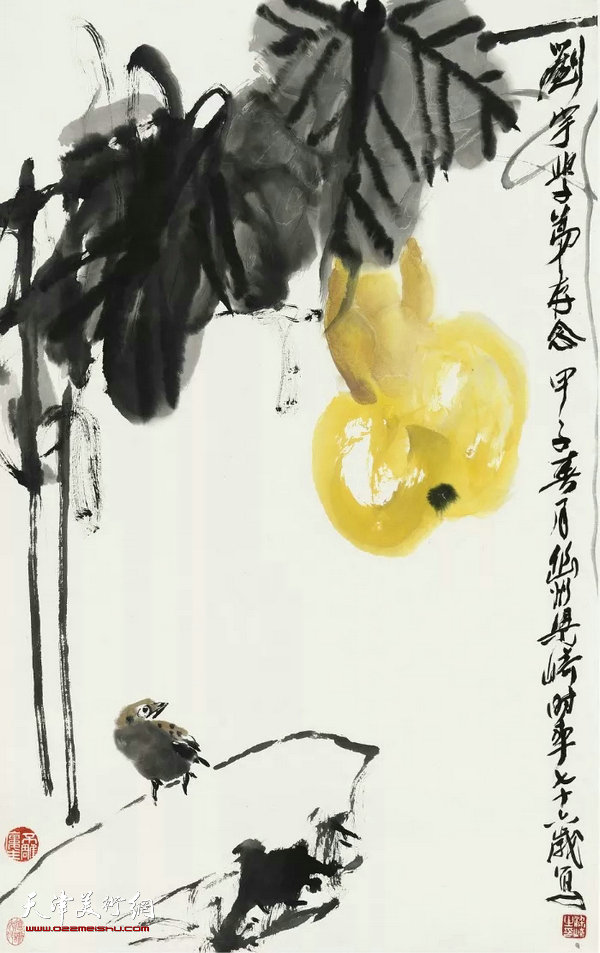 劉宇學弟存念 甲子春月幽州梁崎时年七十六歲寫
天津美術網
www.022meishu.com